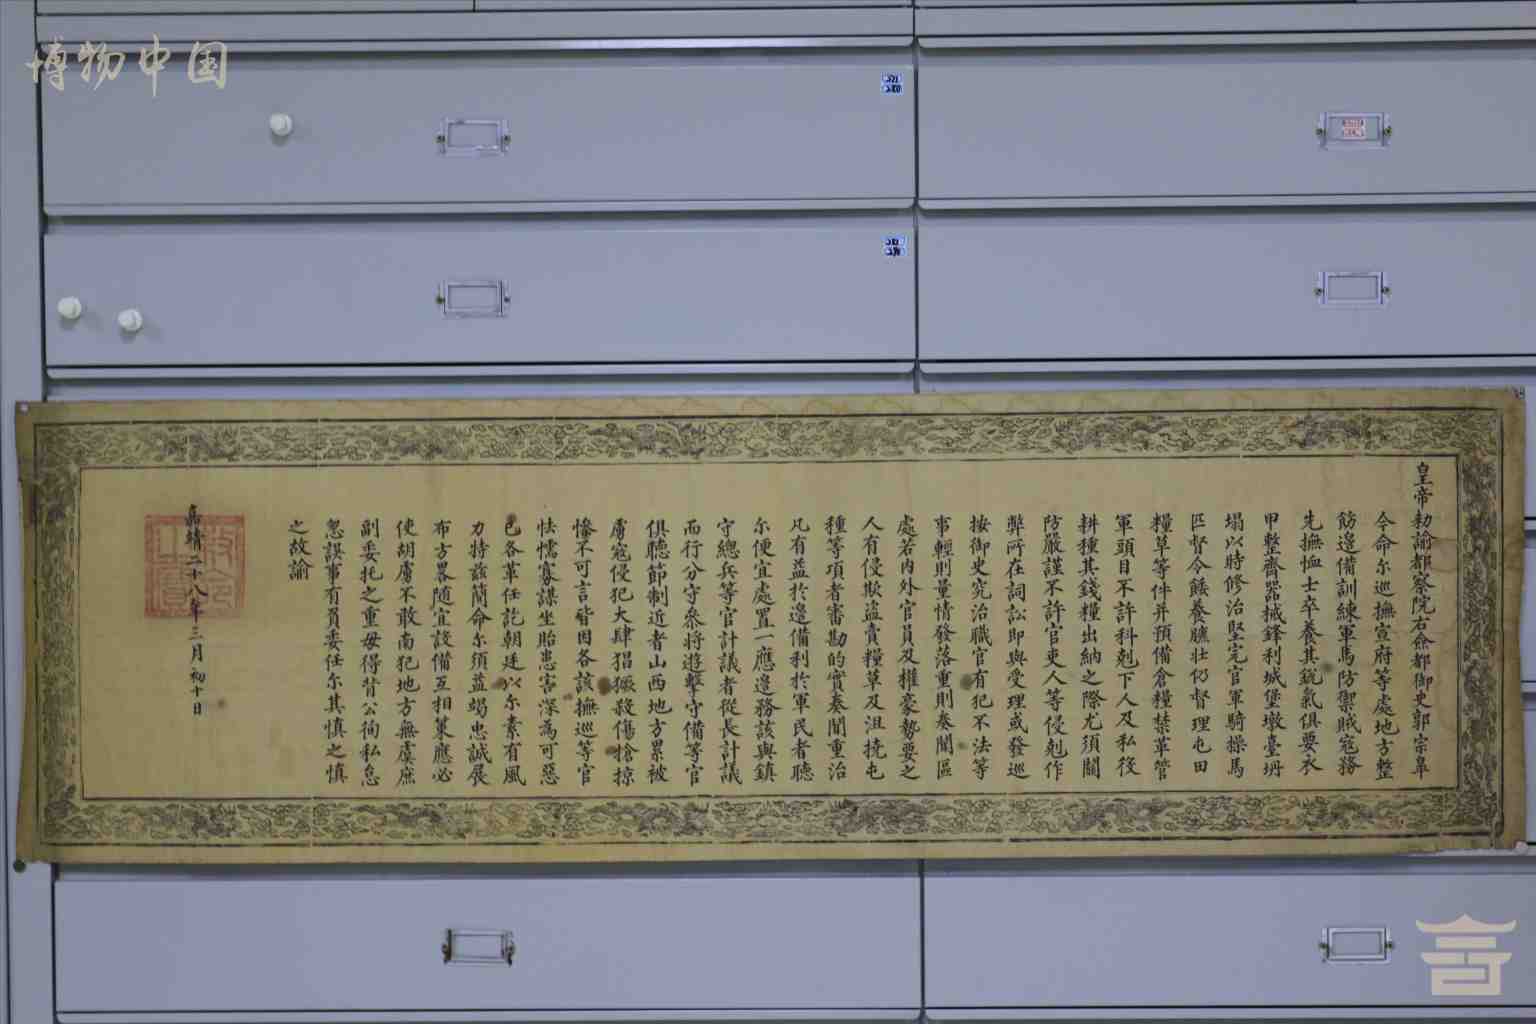 博物中国
皇帝勅諭都察院右僉都御史郭宗皐
今命尔巡撫宣府等處地方整
飭邊備訓練軍馬防禦賊寇務
先撫恤士卒養其銳氣俱要衣
甲整齊器械鋒利城堡墩臺坍
塌以時修治堅完官軍騎操馬
匹督令餧養膘壯仍督理屯田
糧草等件并預備倉糧禁革管
軍頭目不許科剋下人及私役
耕種其錢糧出納之際尤須關
防嚴謹不許官吏人等侵剋作
弊所在詞訟即與受理或發巡
按御史究治職官有犯不法等
事輕則量情發落重則奏聞區
處若內外官員及權豪勢要之
人有侵欺盜賣糧草及沮撓屯
種等項者審勘的實奏聞重治
凡有益於邊備利於軍民者聽
尔便宜處置一應邊務該與鎮
守總兵等官計議者從長計議
而行分守叅將遊擊守備等官
俱聽節制近者山西地方累被
虜寇侵犯大肆猖獗殺傷搶掠
慘不可言皆因各該撫巡等官
怯懦寡謀坐貽患害深為可惡
已各革任訖朝廷以尔素有風
力特茲簡命尔須益竭忠誠展
布方畧随宜設備互相策應必
使胡虜不敢南犯地方無虞庶
副委托之重毋得背公徇私怠
忽誤事有負委任尔其慎之慎
之故諭
嘉靖二十八年三月初十日